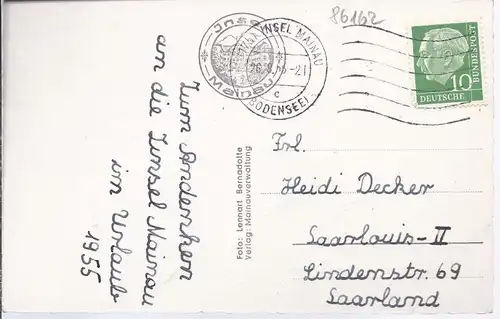 86162
Insel
Mainau
INSEL MAINAU
-21
c
(BODENSEE)
10
DEUTSCHE
BUNDESPOST
Zum Andenken
an die Insel Mainau
im Urlaub
1955
Foto: Lennart Bernadotte
Verlag: Mainauverwaltung
Frl.
Heidi Decker
Saarlouis-II
Lindenstr. 69
Saarland